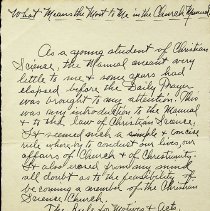 "What Means the Most to Me in the Church Manual"
As a young student of Christian
Science, the Manual meant very
little to me & some years had
elapsed before the Daily Prayer
was brought to my attention. This
was my introduction to the Manual
& to the law of Christian Science.
It seemed such a simple & concise
rule whereby to conduct our lives, our
affairs of Church & of Christianity.
It also went from my mind
all doubt as to the feasibility of
becoming a member of the Christian
Science Church.
The Rule for Motives & Acts